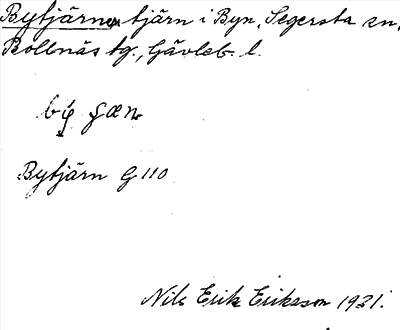 Bytjärnen tjärn i Byn, Segersta sn,
Bollnäs tg., Gävleb. l.
Bytjärn G 110
Nils Erik Eriksson 1931.